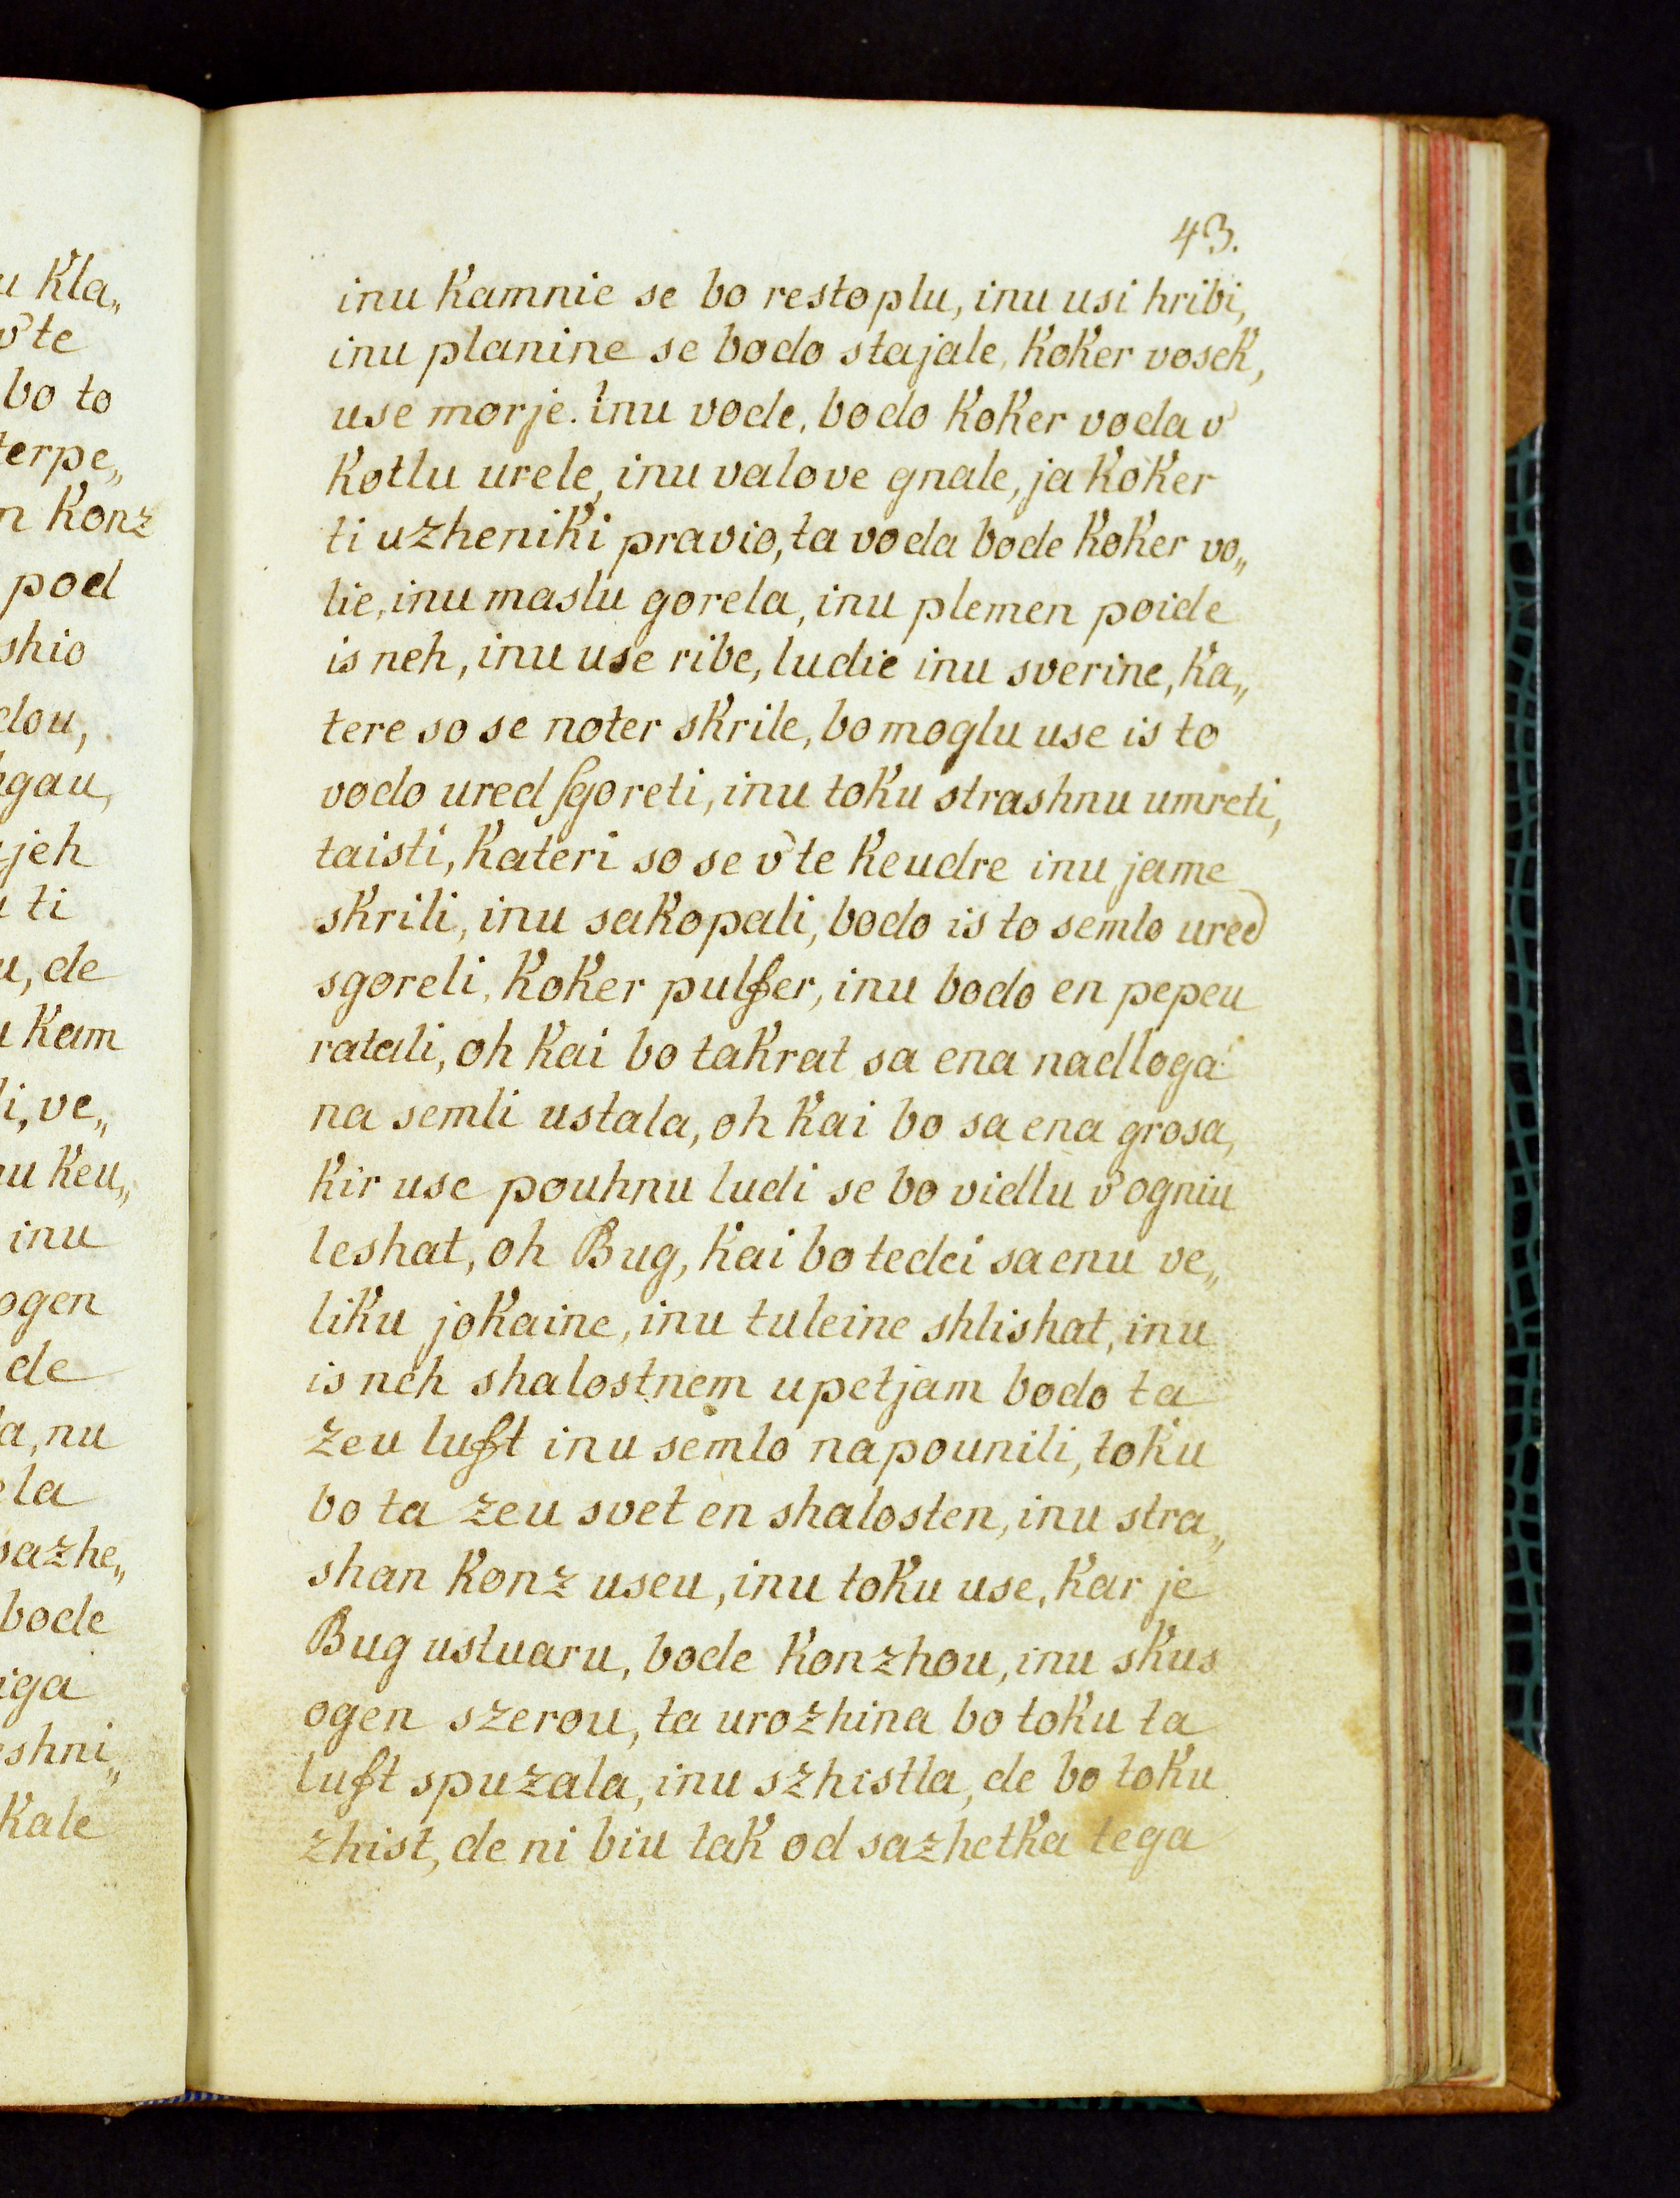 u Kla„
v te
bo to
terpe„
n Konz
pod
shio
dou,
gau,
jeh
ti
u, de
u Kam
li, ve„
nu Keu„
inu
ogen
de
a, nu
ela
sazhe„
bode
iga
shni„
Kale
43.
inu Kamnie se bo restoplu, inu usi hribi,
inu planine se bodo stajale, Koker vosek,
use morje. inu vode, bodo Koker voda v
Kotlu urele, inu valove gnale, ja Koker
ti uzheniki pravio, ta voda bode Koker vo„
lie, inu maslu gorela, inu plemen poide
is neh, inu use ribe, ludie inu sverine, Ka„
tere so se noter skrile, bo moglu use is to
vodo ured sgoreti, inu toku strashnu umreti,
taisti, Kateri so se v te Keudre inu jame
skrili, inu sakopali, bodo is to semlo ured
sgoreli, Koker pulfer, inu bodo en pepeu
ratali, oh Kai bo takrat sa ena nadloga
na semli ustala, oh Kai bo sa ena grosa,
Kir use pouhnu ludi se bo vidlu v ogniu
leshat, oh Bug, Kai bo tedei sa enu ve„
liku jokaine, inu tuleine shlishat, inu
is neh shalostnem upetjam bodo ta
zeu luft inu semlo napounili, toku
bo ta zeu svet en shalosten, inu stra„
shan Konz useu, inu toku use, Kar je
Bug ustuaru, bode Konzhou, inu skus
ogen szerou, ta urozhina bo toku ta
luft spuzala, inu szhistla, de bo toku
zhist, de ni biu tak od sazhetka tega